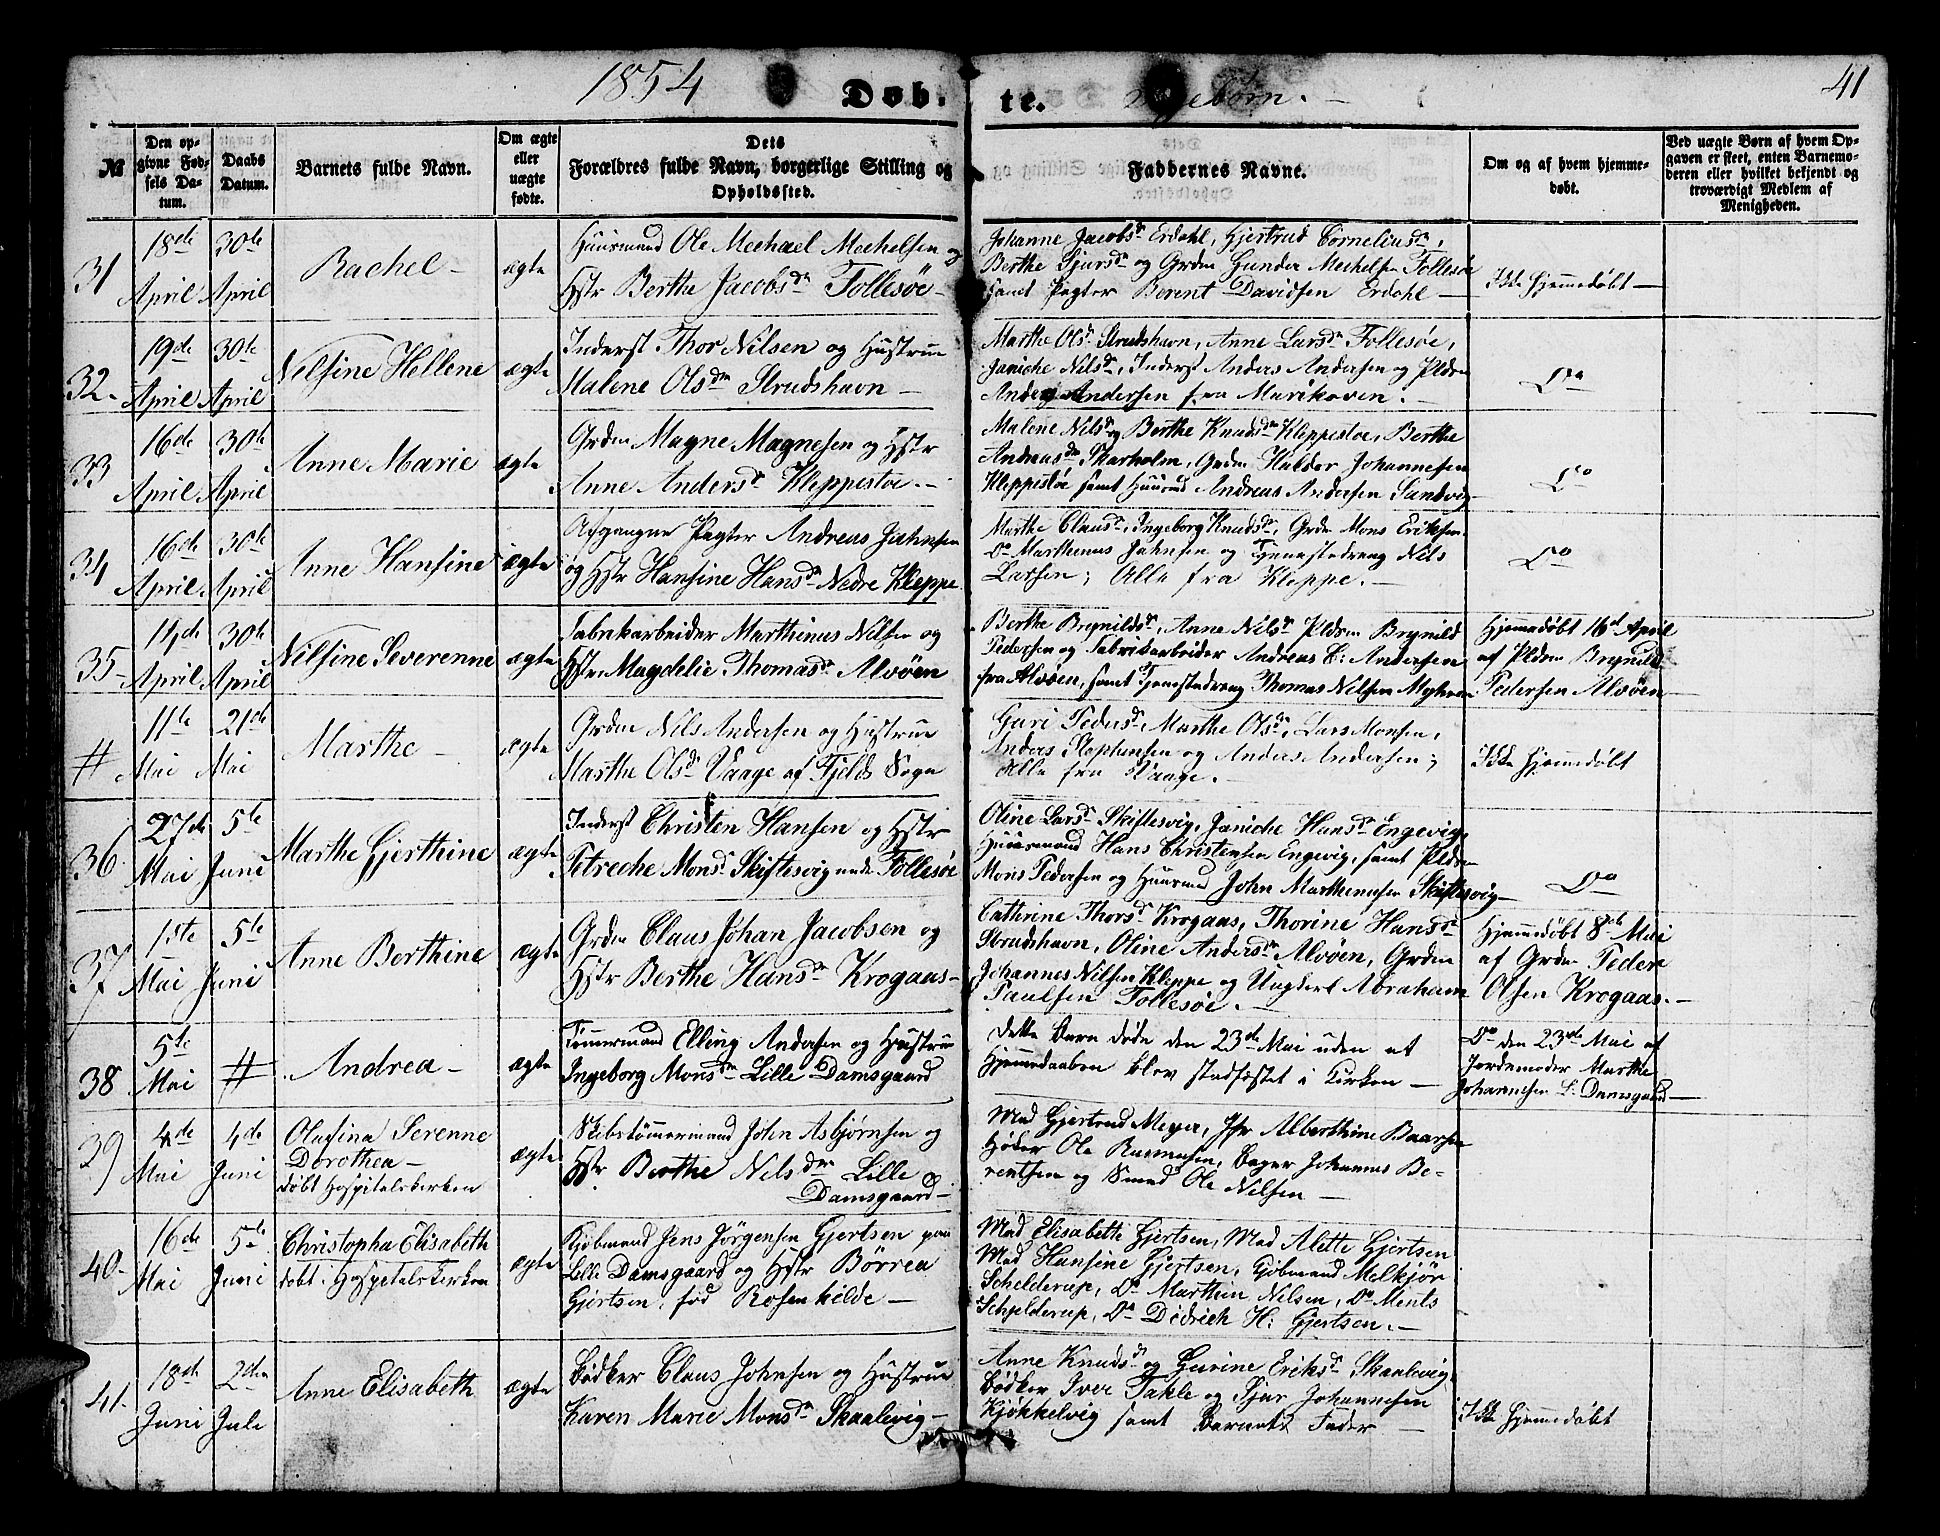 1854 Døb. te. 41
№
Den op-
givne Fød-
sels Da-
tum.
Daabs
Datum.
Barnets fulde Navn.
Om ægte
eller
uægte
fødte.
Dets
Forældres fulde Navn, borgerlige Stilling og
Opholdssted.
Faddernes Navne.
Om og af hvem hjemme-
døbt.
Ved uægte Børn af hvem Op-
gaven er skeet, enten Barnemo-
deren eller hvilket bekjendt og
troværdigt Medlem af
Menigheden.
31
18de
April
30te
April
Rachel –
ægte
Huusmand Ole Mechael Mechelsen og
Hstr Berthe Jacobsdr Follesøe –
Johanne Jacobsdr Erdahl, Gjertrud Corneliusdr,
Berthe Sjursdr og Grdm Gunder Mechelsen Follesøe
samt Pagter Berent Davidsen Erdahl –
Ikke hjemmedøbt –
32.
19de
April
30te
April
Nilsine Hellene
ægte
Inderst Thor Nilsen og Hustrue
Malene Olsdtr Strudshavn –
Marthe Olsdr Strudshavn, Anne Larsdr Follesøe,
Janiche Nilsdr, Inderst Anders Andersen og Pldsm
Anders Andersen fra Marikoven. –
Do
33
16de
April
30te
April
Anne Marie
ægte
Grdm Magne Magnesen og Hstr
Anne Andersdr Kleppestøe. –
Malene Nilsdr og Berthe Knudsdtr Kleppestøe, Berthe
Andreasdtr Skarholm, Grdm Haldor Johannesen
Kleppestøe samt Huusmd Andreas Andersen Sandvig
Do
34
16de
April
30te
April
Anne Hansine
ægte
Afgangne Pagter Andreas Jahnsen
og Hstr Hansine Hansdr Nedre Kleppe
Marthe Clausdr, Ingeborg Knudsdr, Grdm Mons Eriksen
Do Marthinus Jahnsen og Tjenestedreng Nils
Larsen; Alle fra Kleppe. –
Do
35 –
14de
April
30te
April
Nilsine Severenne
ægte
Fabrikarbeider Marthinus Nilsen og
Hstr Magdelie Thomasdr Alvøen
Berthe Brynildsdr, Anne Nilsdr Pldsm Brynild
Pedersen og Fabrikarbeider Andreas C: Andersen
fra Alvøen, samt Tjenestedreng Thomas Nilsen Myhren
Hjemmedøbt 16de April
af Pldsm Brynild
Pedersen Alvøen
#
11te
Mai
21de
Mai
Marthe –
ægte
Grdm Nils Andersen og Hustrue
Marthe Olsdr Vaage af Fjelds Sogn
Guri Pedersdr, Marthe Olsdr, Lars Monsen,
Anders Stephensen og Anders Andersen;
Alle fra Vaage. –
Ikke hjemmedøbt
36
27de
Mai
5te
Juni
Marthe Gjerthine
ægte
Inderst Christen Hansen og Hstr
Petreche Monsdr Skiftesvig unde Follesøe
Oline Larsdr Skiftesvig, Janiche Hansdr Engevig,
Huusmand Hans Christensen Engevig, samt Pldsm
Mons Pedersen og Huusmd John Marthinussen Skiftesvig –
Do
37
1ste
Mai
5te
Juni
Anne Berthine
ægte
Grdm Claus Johan Jacobsen og
Hstr Berthe Hansdtr Krogaas –
Cathrine Thorsdr Krogaas, Thorine Hansdr
Strudshavn, Oline Andersdtr Alvøen, Grdm
Johannes Nilsen Kleppe og Ungkarl Abraham
Paulsen Follesøe. –
Hjemmedøbt 8de Mai
af Grdm Peder
Olsen Krogaas. –
38
5te
Mai
#
Andrea –
ægte
Tømmermand Elling Andersen og Hustrue
Ingeborg Monsdtr Lille Damsgaard
Dette Barn døde den 23de Mai uden at
Hjemmedaaben blev stadfæstet i Kirken –
Do den 23de Mai af
Jordemoder Marthe
Johannesen L: Damsgaard –
39
4de
Mai
4de
Juni
Olufina Serenne
Dorothea –
døbt Hospitalskirken
ægte
Skibstømmermand John Asbjørnsen og
Hstr Berthe Nilsdtr Lille
Damsgaard –
Mad Gjertrud Meyer, Jfr Alberthine Baarsen
Høker Ole Rasmusen, Bager Johannes Be-
rentsen og Smed Ole Nilsen –
40 –
16de
Mai
5te
Juni
Christopha Elisabeth
døbt i Hospitalskirken
ægte
Kjøbmand Jens Jörgensen Gjertsen paa
Lille Damsgaard og Hstr Börrea
Gjertsen, fød Rosenkilde –
Mad Elisabeth Gjertsen, Mad Alette Gjertsen
Mad Hansine Gjertsen, Kjøbmand Melkjør
Schelderup, Do Marthin Nilsen, Do Ments
Schjelderup, Do Didrich H: Gjertsen. –
41.
18de
Juni
2den
Jule
Anne Elisabeth
ægte
Bødker Claus Johnsen og Hustrue
Karen Marie Monsdr Skaalevig –
Anne Knudsdr og Gurine Eriksdr Skaalevig,
Bødker Iver Takle og Sjur Johannesen
Kjøkkelvig samt Barnets Fader –
Ikke hjemmedøbt